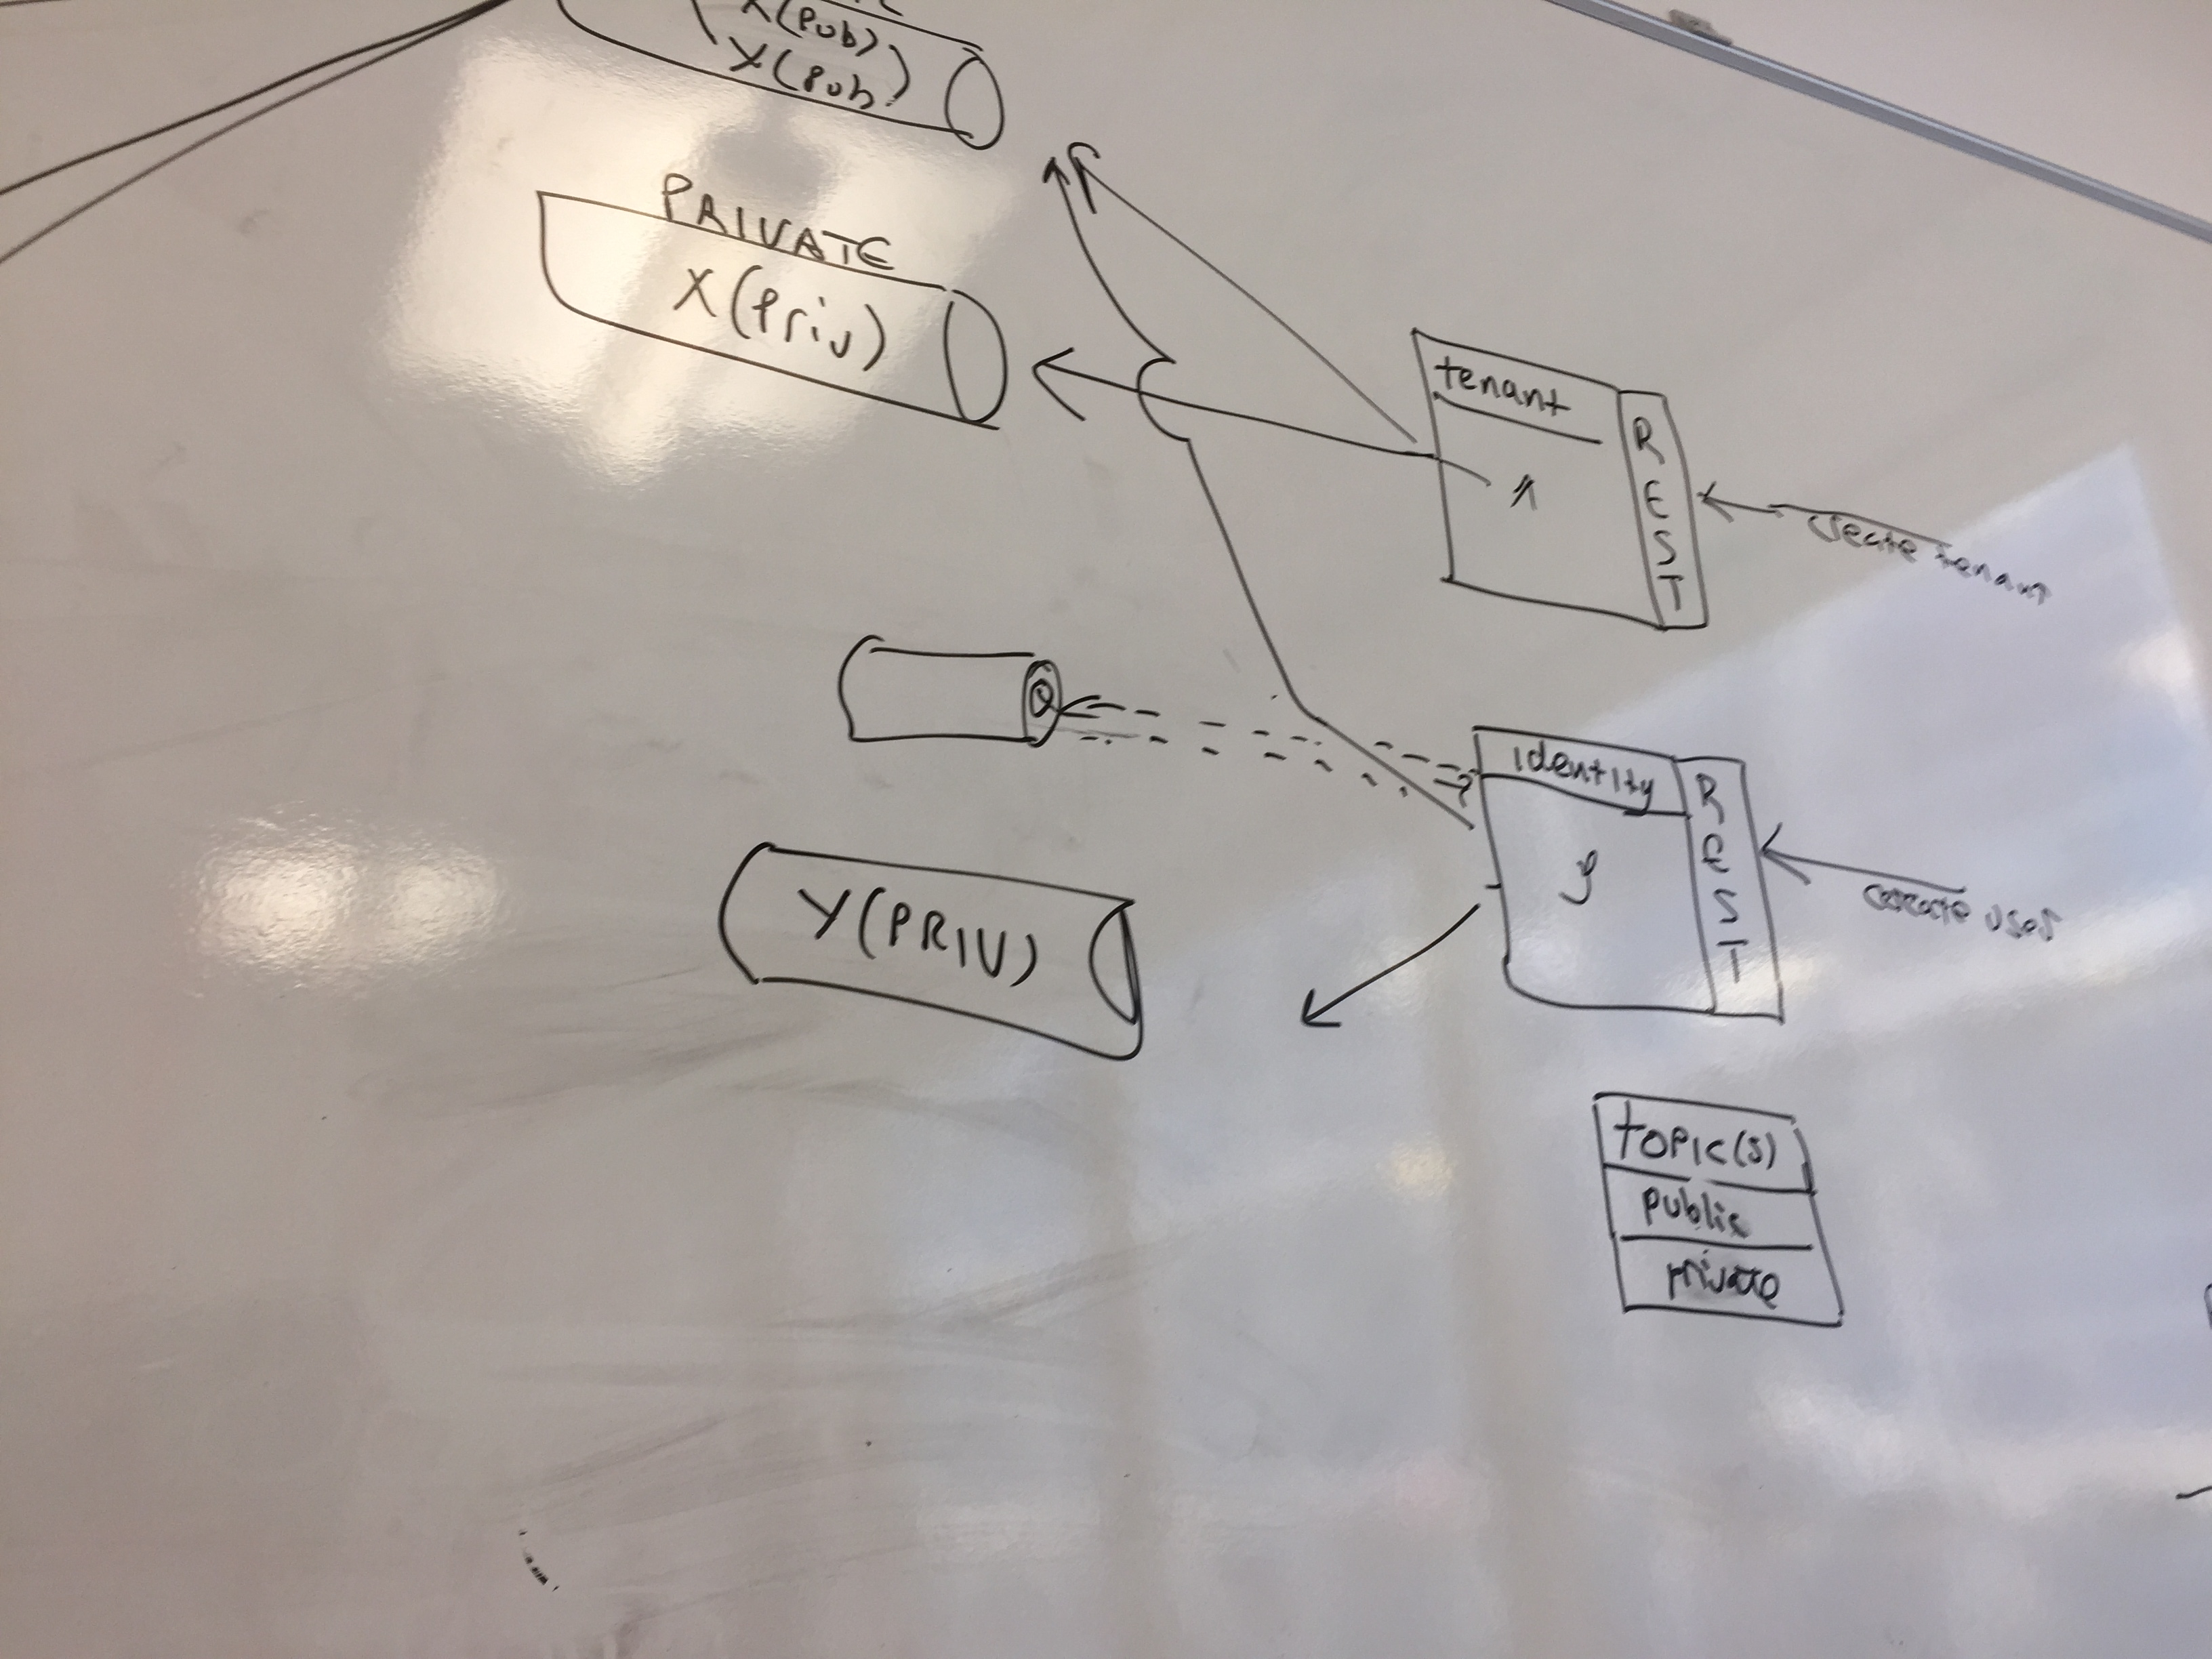 X(Pub)
Y(Pub)
PRIVATE
X(Priv)
tenant
REST
create tenant
identity
y
REST
create user
Y(PRIV)
TOPIC(S)
Public
private